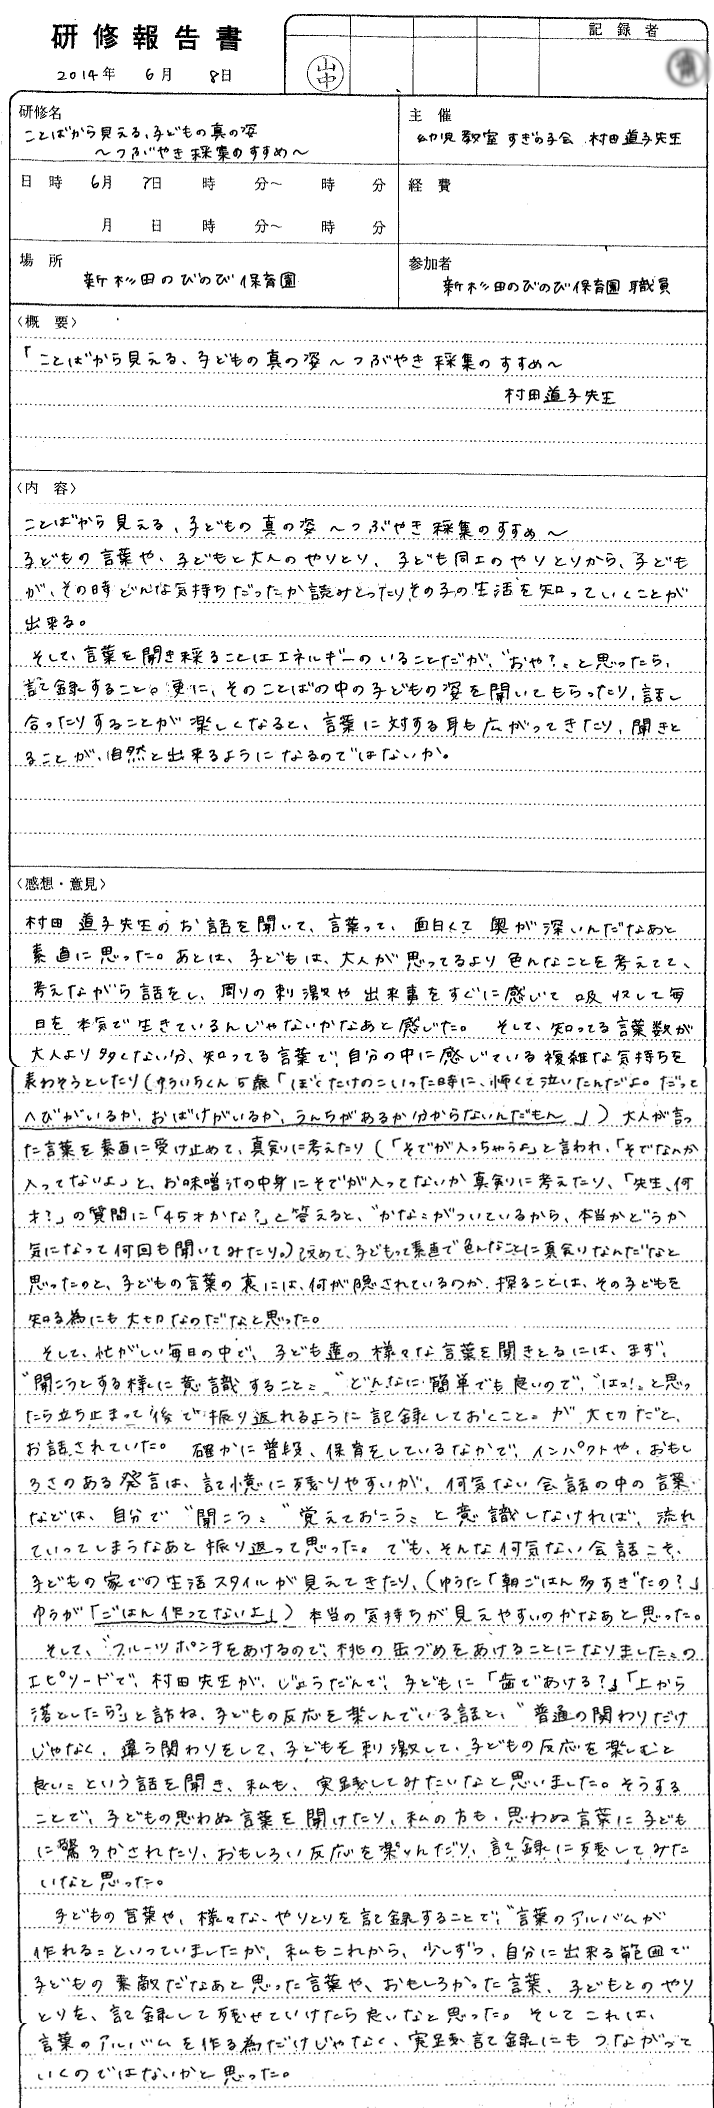 研修報告書
2014年 6月 8日
記録者
山中
研修名
ことばから見える、子どもの真の姿
～つぶやき採集のすすめ～
主催
幼児教室 すぎの子会 村田道子先生
日時 6月 7日 時 分～ 時 分
月 日 時 分～ 時 分
経費
場所
新杉田のびのび保育園
参加者
新杉田のびのび保育園 職員
〈概要〉
「ことばから見える、子どもの真の姿～つぶやき採集のすすめ～
村田道子先生
〈内容〉
ことばから見える、子どもの真の姿～つぶやき採集のすすめ～
子どもの言葉や、子どもと大人のやりとり、子ども同士のやりとりから、子ども
が、その時どんな気持ちだったか読みとったりその子の生活を知っていくことが
出来る。
そして、言葉を聞き採ることはエネルギーのいることだが、〝おや?〟と思ったら、
記録すること。更に、そのことばの中の子どもの姿を聞いてもらったり、話し
合ったりすることが楽しくなると、言葉に対する耳も広がってきたり、聞きと
ることが、自然と出来るようになるのではないか。
〈感想・意見〉
村田道子先生のお話を聞いて、言葉って、面白くて奥が深いんだなあと
素直に思った。あとは、子どもは、大人が思ってるより色んなことを考えてて、
考えながら話をし、周りの刺激や出来事をすぐに感じて吸収して毎
日を本気で生きているんじゃないかなあと感じた。そして、知ってる言葉数が
大人より多くない分、知ってる言葉で、自分の中に感じている複雑な気持ちを
表わそうとしたり(ゆういちくん5歳「ぼくたけのこいった時に、怖くて泣いたんだよ。だって
へびがいるか、おばけがいるか、うんちがあるか分からないんだもん。」)大人が言っ
た言葉を素直に受け止めて、真剣に考えたり(「そでが入っちゃうよ」と言われ、「そでなんか
入ってないよ」と、お味噌汁の中身にそでが入ってないか真剣に考えたり、「先生、何
才?」の質問に「45才かな?」と答えると、〝かな〟がついているから、本当かどうか
気になって何回も聞いてみたり。)改めて、子どもって素直で色んなことに真剣なんだなと
思ったのと、子どもの言葉の裏には、何が隠されているのか、探ることは、その子どもを
知る為にも大切なのだなと思った。
そして、忙がしい毎日の中で、子ども達の様々な言葉を聞きとるには、まず、
〝聞こうとする様に意識すること〟〝どんなに簡単でも良いので、〝はっ!〟と思っ
たら立ち止まって後で振り返れるように記録しておくこと。が大切だと、
お話されていた。確かに普段、保育をしているなかで、インパクトや、おもし
ろさのある発言は、記憶に残りやすいが、何気ない会話の中の言葉
などは、自分で〝聞こう〟〝覚えておこう〟と意識しなければ、流れ
ていってしまうなあと振り返って思った。でも、そんな何気ない会話こそ、
子どもの家での生活スタイルが見えてきたり、(ゆうた「朝ごはん多すぎたの?」
ゆうが「ごはん作ってないよ」)本当の気持ちが見えやすいのかなあと思った。
そして、〝フルーツポンチをあけるので、桃の缶づめをあけることになりました〟の
エピソードで、村田先生が、じょうだんで、子どもに「歯であける?」「上から
落としたら?」と訪ね、子どもの反応を楽しんでいる話と、〝普通の関わりだけ
じゃなく、違う関わりをして、子どもを刺激して、子どもの反応を楽しむと
良い〟という話を聞き、私も、実践してみたいなと思いました。そうする
ことで、子どもの思わぬ言葉を聞けたり、私の方も、思わぬ言葉に子ども
に驚ろかされたり、おもしろい反応を楽しんだり、記録に残してみた
いなと思った。
子どもの言葉や、様々な、やりとりを記録することで、〝言葉のアルバムが
作れる〟といっていましたが、私もこれから、少しずつ、自分に出来る範囲で
子どもの素敵だなあと思った言葉や、おもしろかった言葉、子どもとのやり
とりを、記録して残せていけたら良いなと思った。そしてこれは、
言葉のアルバムを作る為だけじゃなく、実践記録にもつながって
いくのではないかと思った。